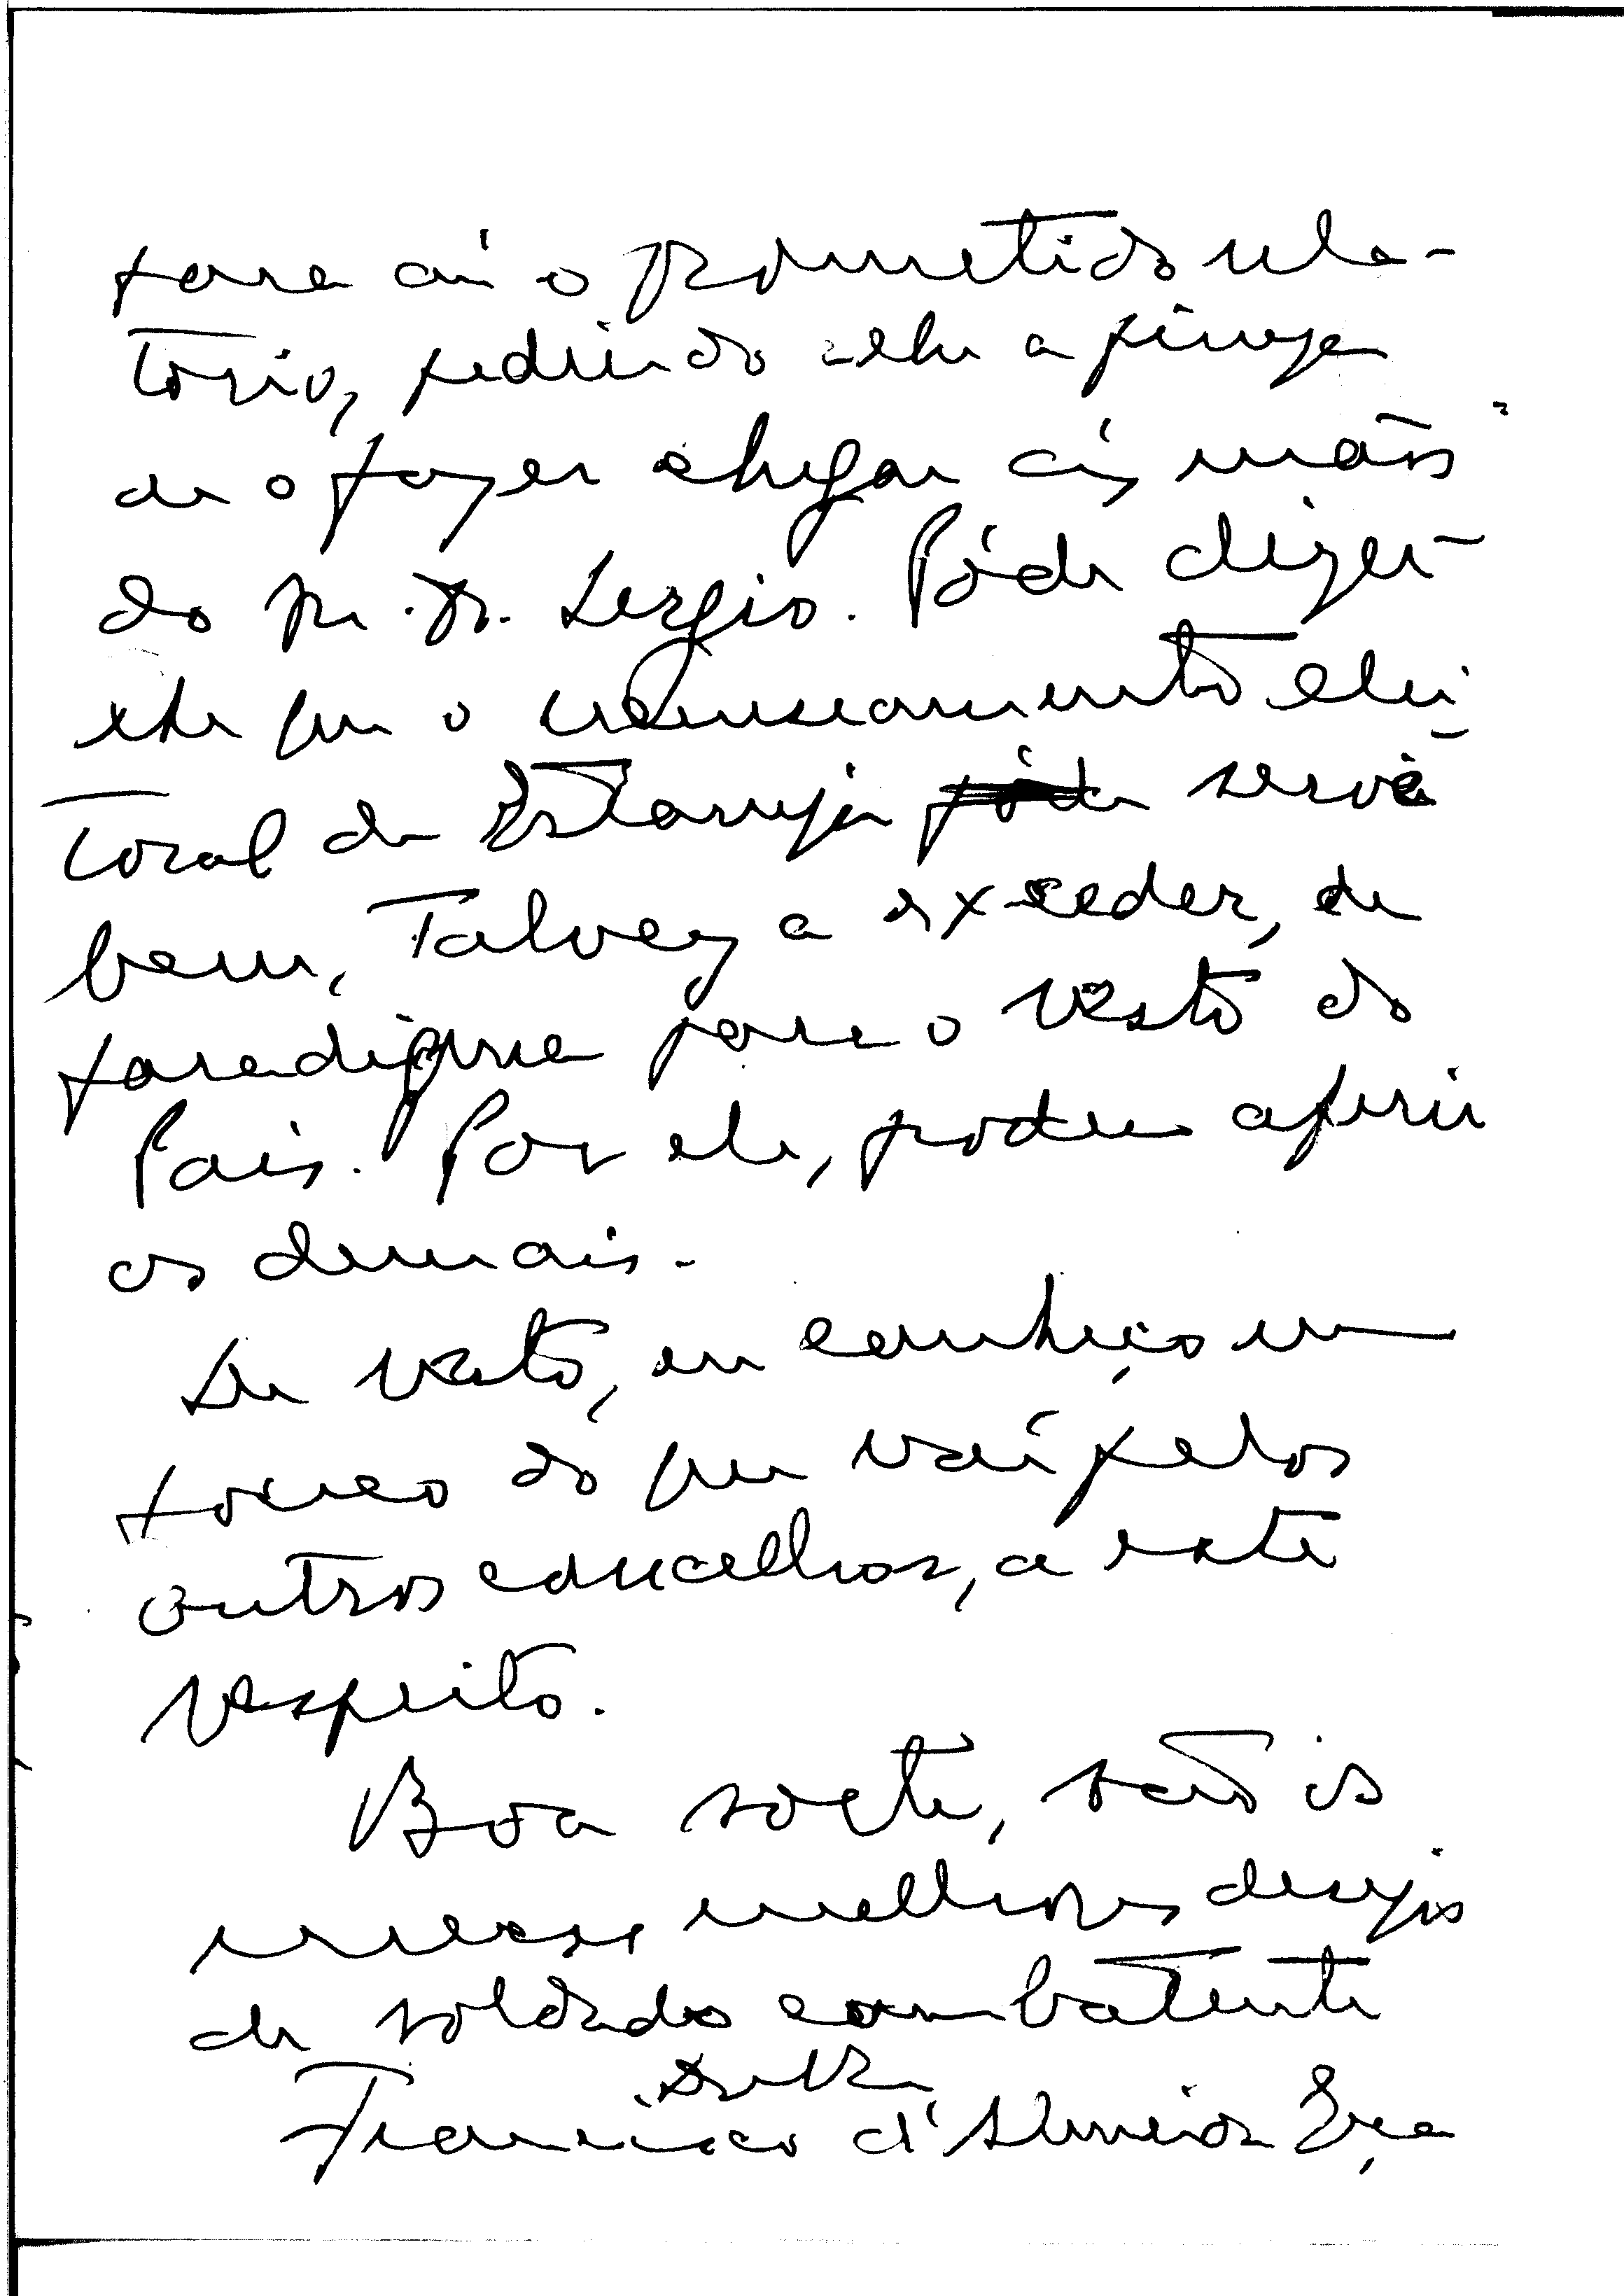 para aí o prometido rela-
torio, pedindo-lhe a fineza
de o fazer chegar ás mãos
do Sr. Dr. Sergio. Póde dizer-
-lhe que o recenseamento elei-
toral de Estarreja póde servè
bem, talvez a exceder, de
paradigma para o resto do
País. Por ele, podem aferir
os demais.
De resto, eu conheço um
pouco do que vai pelos
outros concelhos, a este
respeito.
Boa sorte, são os
meus melhores desejos
de soldado combatente
Francisco d'Almeida Eça